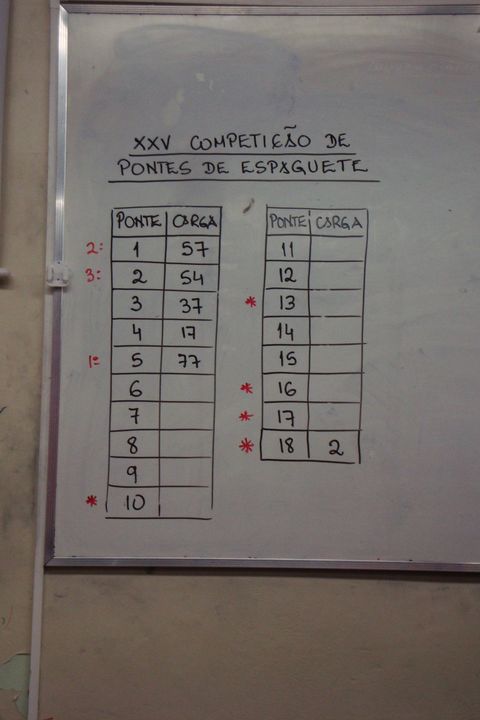 XXV COMPETIÇÃO DE
PONTES DE ESPAGUETE
PONTE CARGA
2º 1 57
3º 2 54
3 37
4 17
1º 5 77
6
7
8
9
* 10
PONTE CARGA
11
12
* 13
14
15
* 16
* 17
* 18 2